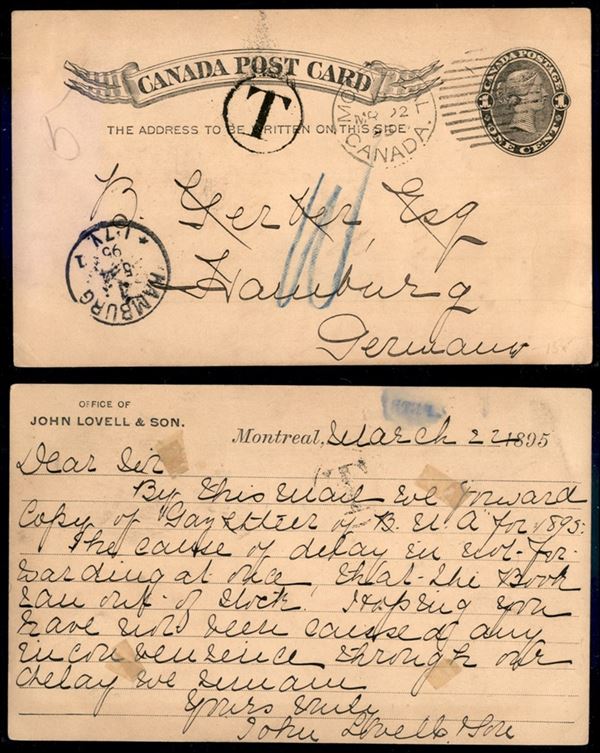 CANADA POST CARD
CANADA POSTAGE
1 1
ONE CENT
T
CANADA.
THE ADDRESS TO BE WRITTEN ON THIS SIDE
B. Esq
Hamburg
Germany
HAMBURG
95
1
OFFICE OF
JOHN LOVELL & SON.
Montreal, March 22 1895
Dear Sir
By this mail we forward
Copy of "Gazetteer of B. N. A" for 1895.
The cause of delay in not for-
warding at once, that the Book
ran out of stock. Hoping you
have not been caused any
inconvenience through our
delay we remain
Yours truly
John Lovell & Son